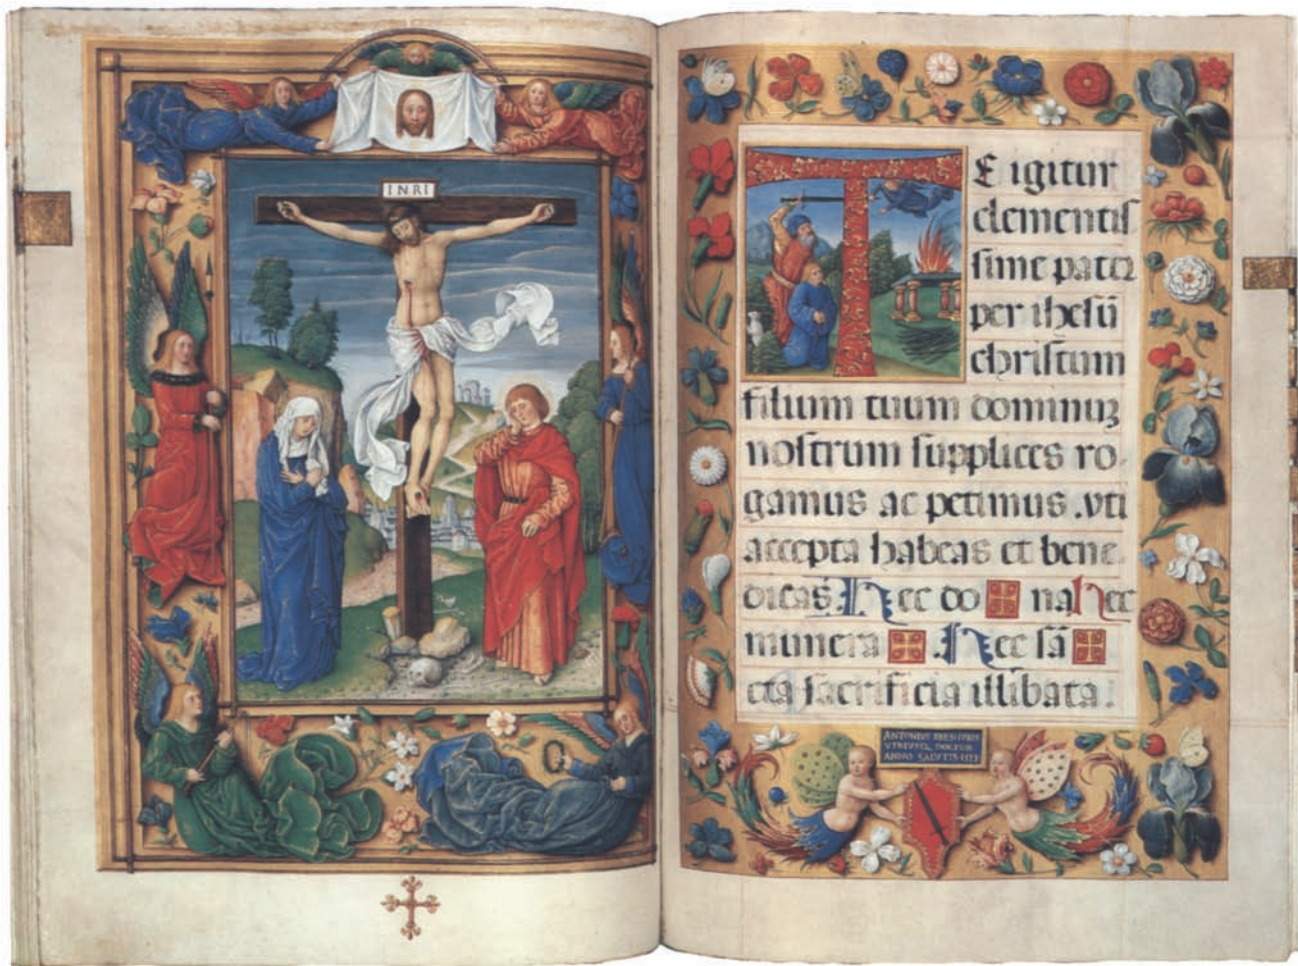 INRI
TE igitur
clementis
sime pater
per ihesū
christum
filium tuum dominuz
nostrum supplices ro
gamus ac petimus .vti
accepta habeas et bene
dicas. Hec do na Hec
munera . Hec sā
cta sacrificia illibata .
ANTONIUS
VTRIVSQ. DOCTOR
ANNO SALVTIS